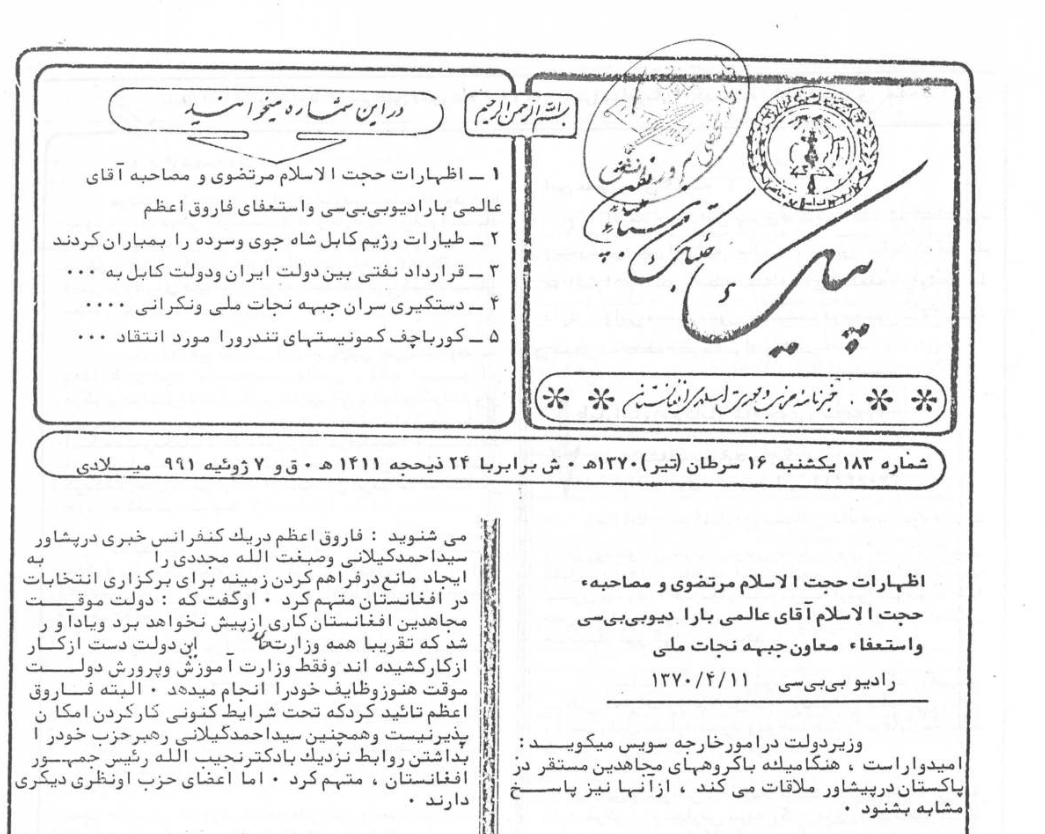 بسم الله الرحمن الرحیم
پیام
خبرنامه حزب وحدت اسلامی افغانستان
دراین شماره میخوانید
۱ ــ اظهارات حجت الاسلام مرتضوی و مصاحبه آقای
عالمی بارادیوبی‌بی‌سی واستعفای فاروق اعظم
۲ ــ طیارات رژیم کابل شاه جوی وسرده را بمباران کردند
۳ ــ قرارداد نفتی بین دولت ایران ودولت کابل به ۰۰۰
۴ ــ دستگیری سران جبهه نجات ملی ونگرانی ۰۰۰۰
۵ ــ کورباچف کمونیستهای تندرورا مورد انتقاد ۰۰۰
شماره ۱۸۳ یکشنبه ۱۶ سرطان (تیر) ۱۳۷۰هـ ۰ ش برابربا ۲۴ ذیحجه ۱۴۱۱ هـ ۰ ق و ۷ ژوئیه ۹۹۱ میــلادی
اظهارات حجت الاسلام مرتضوی و مصاحبهء
حجت الاسلام آقای عالمی بارا دیوبی‌بی‌سی
واستعفاء معاون جبهه نجات ملی
رادیو بی‌بی‌سی ۱۳۷۰/۴/۱۱
وزیردولت درامورخارجه سویس میگویــد :
امیدواراست ، هنگامیکه باگروههای مجاهدین مستقر در
پاکستان درپیشاور ملاقات می کند ، ازآنها نیز پاســخ
مشابه بشنود ۰
می شنوید : فاروق اعظم دریك کنفرانس خبری درپشاور
سیداحمدگیلانی وصبغت الله مجددی را به
ایجاد مانع درفراهم کردن زمینه برای برگزاری انتخابات
در افغانستان متهم کرد ۰ اوگفت که : دولت موقــت
مجاهدین افغانستان کاری ازپیش نخواهد برد ویادآو ر
شد که تقریبا همه وزارتخا این دولت دست ازکــار
ازکارکشیده اند وفقط وزارت آموزش وپرورش دولــت
موقت هنوزوظایف خودرا انجام میدهد ۰ البته فــاروق
اعظم تائید کردکه تحت شرایط کنونی کارکردن امکا ن
پذیرنیست وهمچنین سیداحمدگیلانی رهبرحزب خودر ا
بداشتن روابط نزدیك بادکترنجیب الله رئیس جمهــور
افغانستان ، متهم کرد ۰ اما اعضای حزب اونظری دیگری
دارند ۰